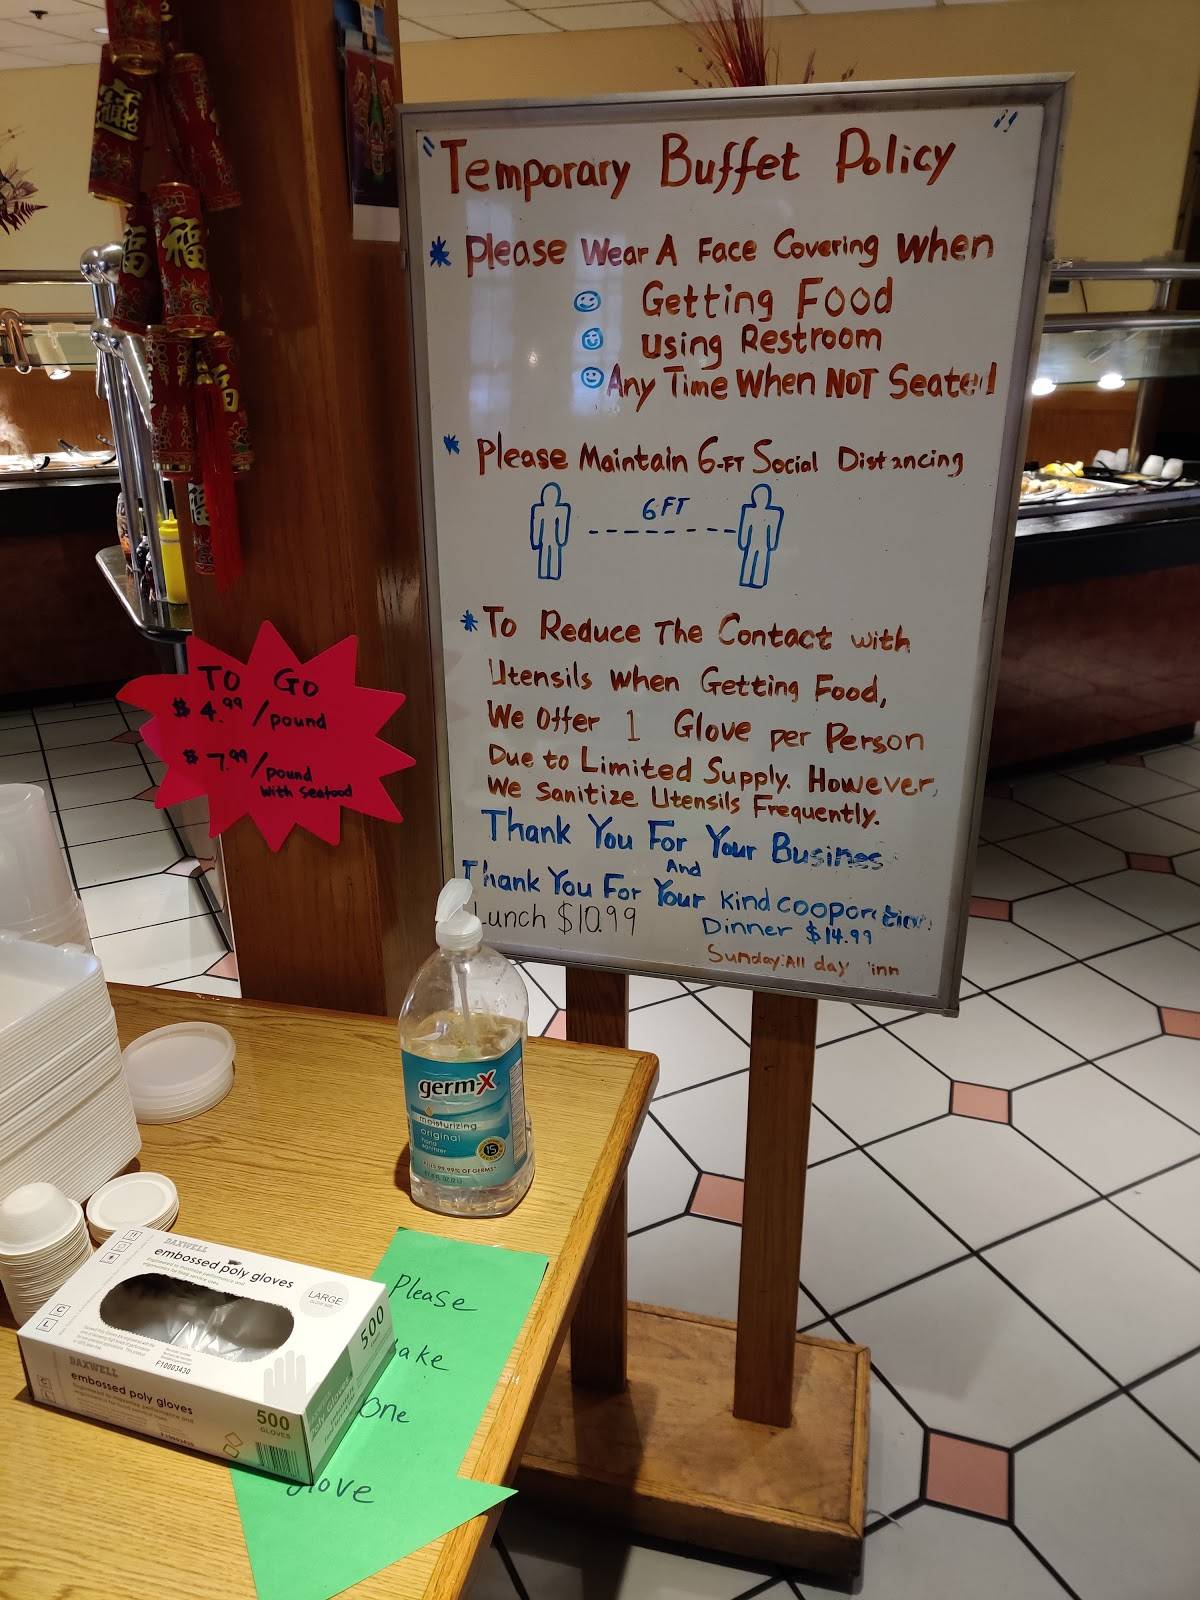 "Temporary Buffet Policy"
* Please Wear A Face Covering When
Getting Food
Using Restroom
Any Time When NOT Seated
* Please Maintain 6-FT Social Distancing
6 FT
* To Reduce The Contact with
Utensils When Getting Food,
We Offer 1 Glove per Person
Due to Limited Supply. However,
We Sanitize Utensils Frequently.
Thank You For Your Busines
And
Thank You For Your Kind cooporation
Lunch $10.99
Dinner $14.99
Sunday:All day inn
TO GO
$4.99/pound
$7.99/pound
with Seafood
福
福
福
福
germ-x
moisturizing
original
hand
sanitizer
15
99.99% OF GERMS*
DAXWELL
embossed poly gloves
LARGE
F10003430
500
C
L
DAXWELL
embossed poly gloves
500
GLOVES
Please
ake
One
glove